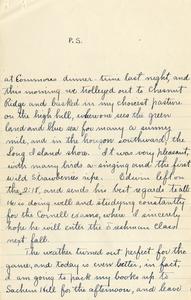 P.S.
at Commons dinner-time last night, and
this morning we trolleyed out to Chesnut
Ridge and basked in my choicest pasture
on the high hill, where one sees the green
land and blue sea for many a sunny
mile, and on the horizon southward, the
Long Island shore. It was very pleasant,
with many birds a-singing and the first
wild strawberries ripe. Edwin left on
the 2:18, and sends his best regards to all.
He is doing well and studying constantly
for the Cornell exams, where I sincerely
hope he will enter the freshman class
next fall.
The weather turned out perfect for the
game, and today is even better, in fact,
I am going to pack my books up to
Sachem Hill for the afternoon, and leave